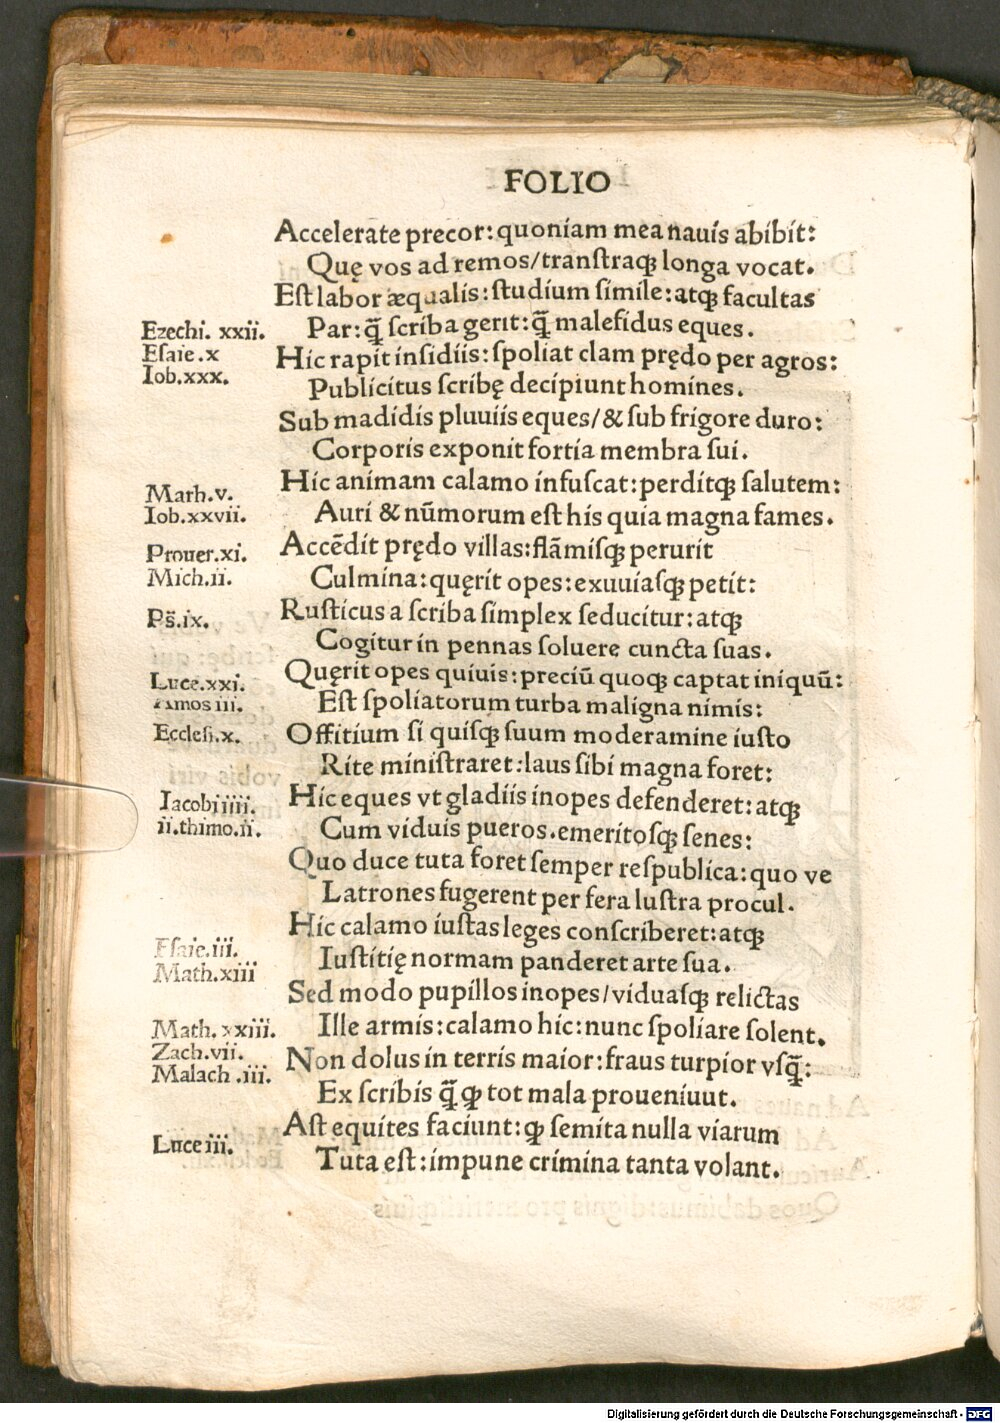 FOLIO
Accelerate precor: quoniam mea nauis abibit:
Quę vos ad remos/transtraqꝫ longa vocat.
Est labor æqualis: studium simile: atqꝫ facultas
Ezechi. xxii. Par: q̄ scriba gerit: q̄ malefidus eques.
Esaie .x Hic rapit insidiis: spoliat clam prędo per agros:
Iob.xxx. Publicitus scribę decipiunt homines.
Sub madidis pluuiis eques/& sub frigore duro:
Corporis exponit fortia membra sui.
Math.v. Hic animam calamo infuscat: perditqꝫ salutem:
Iob.xxvii. Auri & nūmorum est his quia magna fames.
Prouer.xi. Accēdit prędo villas: flāmisqꝫ perurit
Mich.ii. Culmina: quęrit opes: exuuiasqꝫ petit:
Ps̄.ix. Rusticus a scriba simplex seducitur: atqꝫ
Cogitur in pennas soluere cuncta suas.
Luce.xxi. Quęrit opes quiuis: preciū quoqꝫ captat iniquū:
Amos iii. Est spoliatorum turba maligna nimis:
Ecclesi.x. Offitium si quisqꝫ suum moderamine iusto
Rite ministraret: laus sibi magna foret:
Iacobi iiii. Hic eques vt gladiis inopes defenderet: atqꝫ
ii.thimo.ii. Cum viduis pueros.emeritosqꝫ senes:
Quo duce tuta foret semper respublica: quo ve
Latrones fugerent per fera lustra procul.
Hic calamo iustas leges conscriberet: atqꝫ
Esaie.iii. Iustitię normam panderet arte sua.
Math.xiii Sed modo pupillos inopes/viduasqꝫ relictas
Math. xxiii. Ille armis: calamo hic: nunc spoliare solent.
Zach.vii. Non dolus in terris maior: fraus turpior vsq̄:
Malach .iii. Ex scribis q̄ ꝙ tot mala proueniuut.
Ast equites faciunt: ꝙ semita nulla viarum
Luce iii. Tuta est: impune crimina tanta volant.
Digitalisierung gefördert durch die Deutsche Forschungsgemeinschaft - DFG